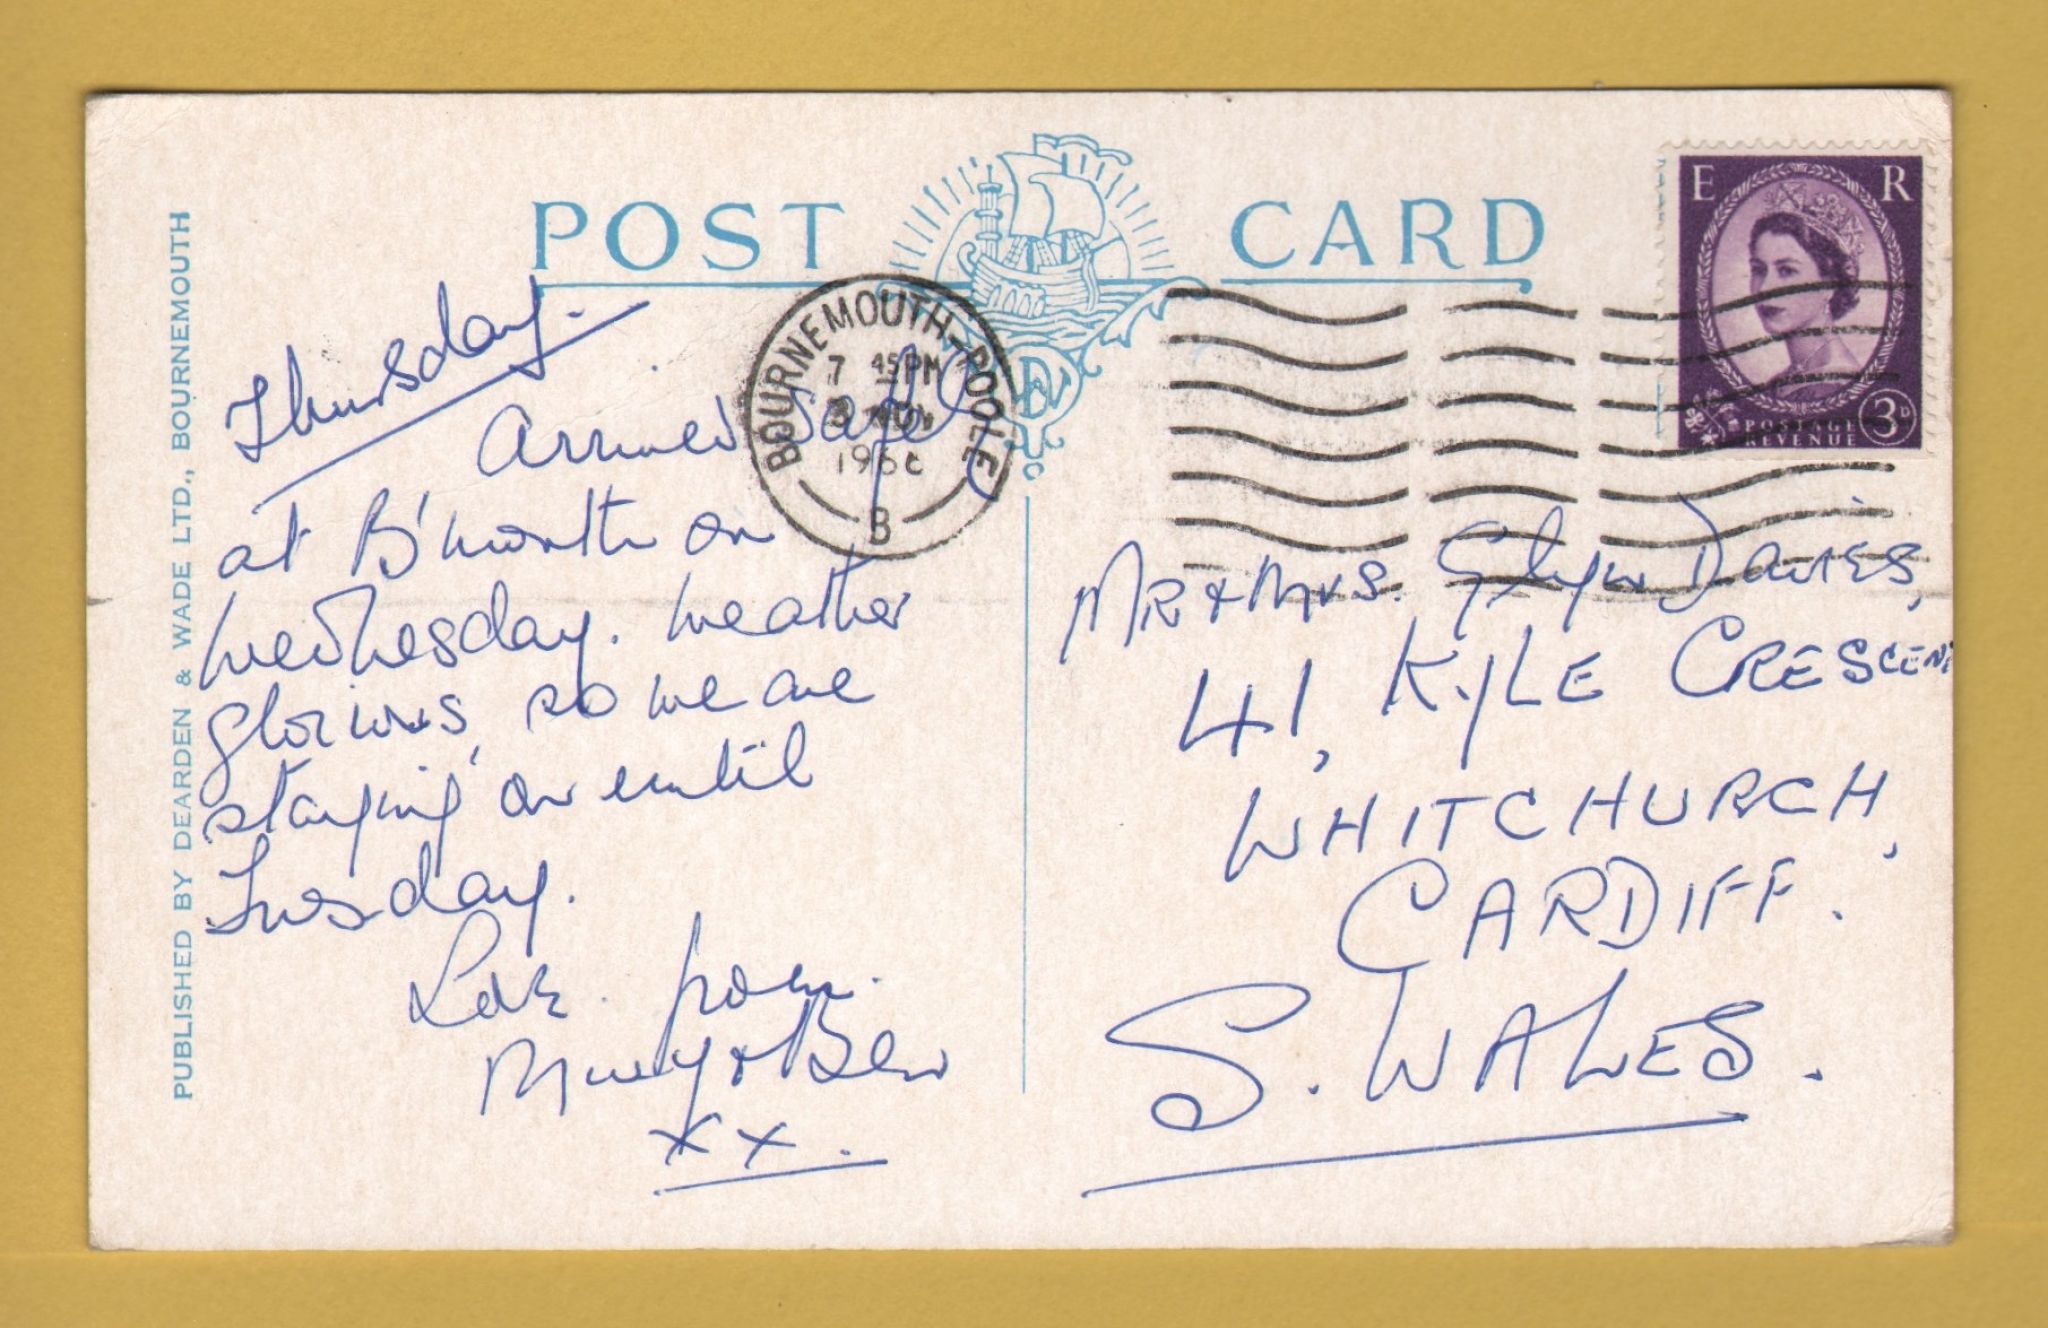 POST CARD
PUBLISHED BY DEARDEN & WADE LTD., BOURNEMOUTH
BOURNEMOUTH-POOLE
7 45 PM
3 NOV
196
B
E R
POSTAGE
REVENUE
3D
Thursday.
Arrived safely
at B'mouth on
Wednesday. Weather
glorious, so we are
staying on until
Tuesday.
Love from
& Bev
xx.
MR & MRS. Glyn DAVIES,
41, KYLE CRESCENT
WHITCHURCH,
CARDIFF.
S. WALES.